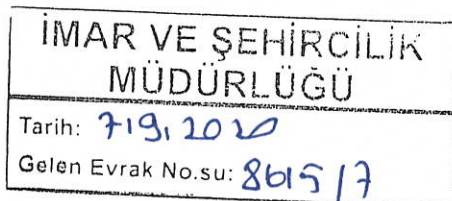 İMAR VE ŞEHİRCİLİK
MÜDÜRLÜĞÜ
Tarih: 7.9.2020
Gelen Evrak No.su: 8615/7